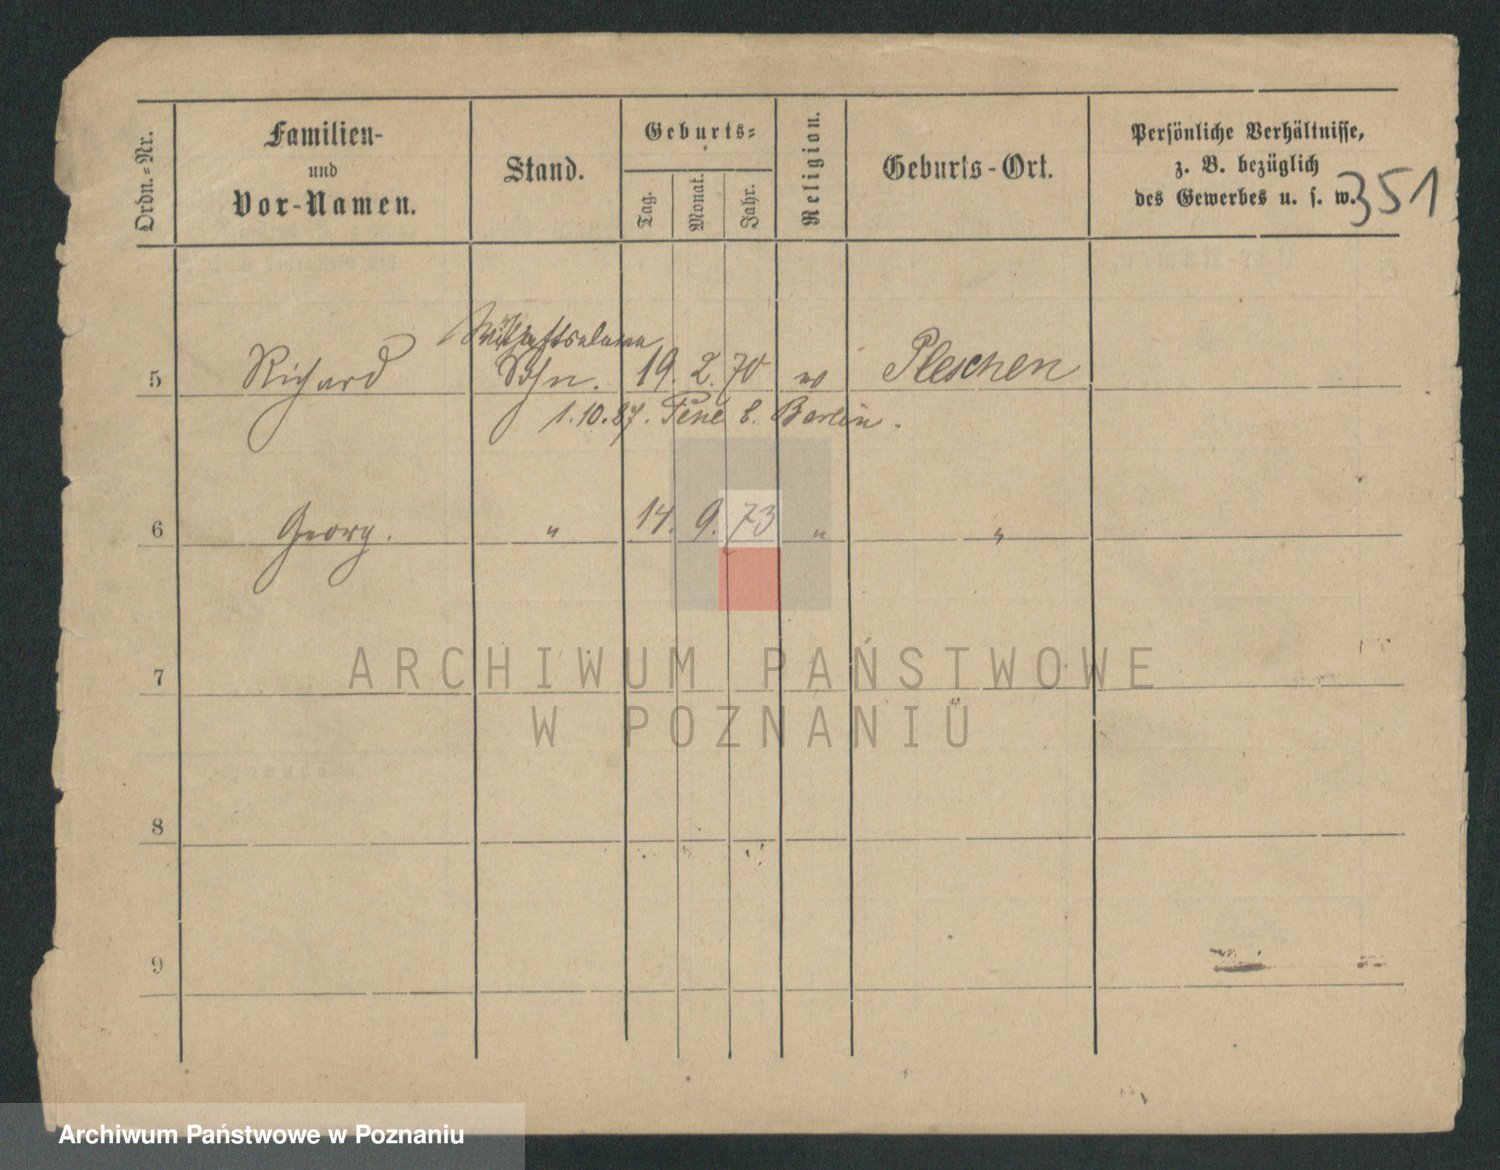 Ordn.-Nr.
Familien-
und
Vor-Namen.
Stand.
Geburts-
Tag.
Monat.
Jahr.
Religion.
Geburts-Ort.
Persönliche Verhältnisse,
z. B. bezüglich
des Gewerbes u. s. w.
351
5 Richard Sohn. 19. 2. 70 Pleschen
1.10.87. b. Berlin.
6 Georg. " 14. 9. 73 " "
7
ARCHIWUM PAŃSTWOWE
W POZNANIU
8
9
Archiwum Państwowe w Poznaniu